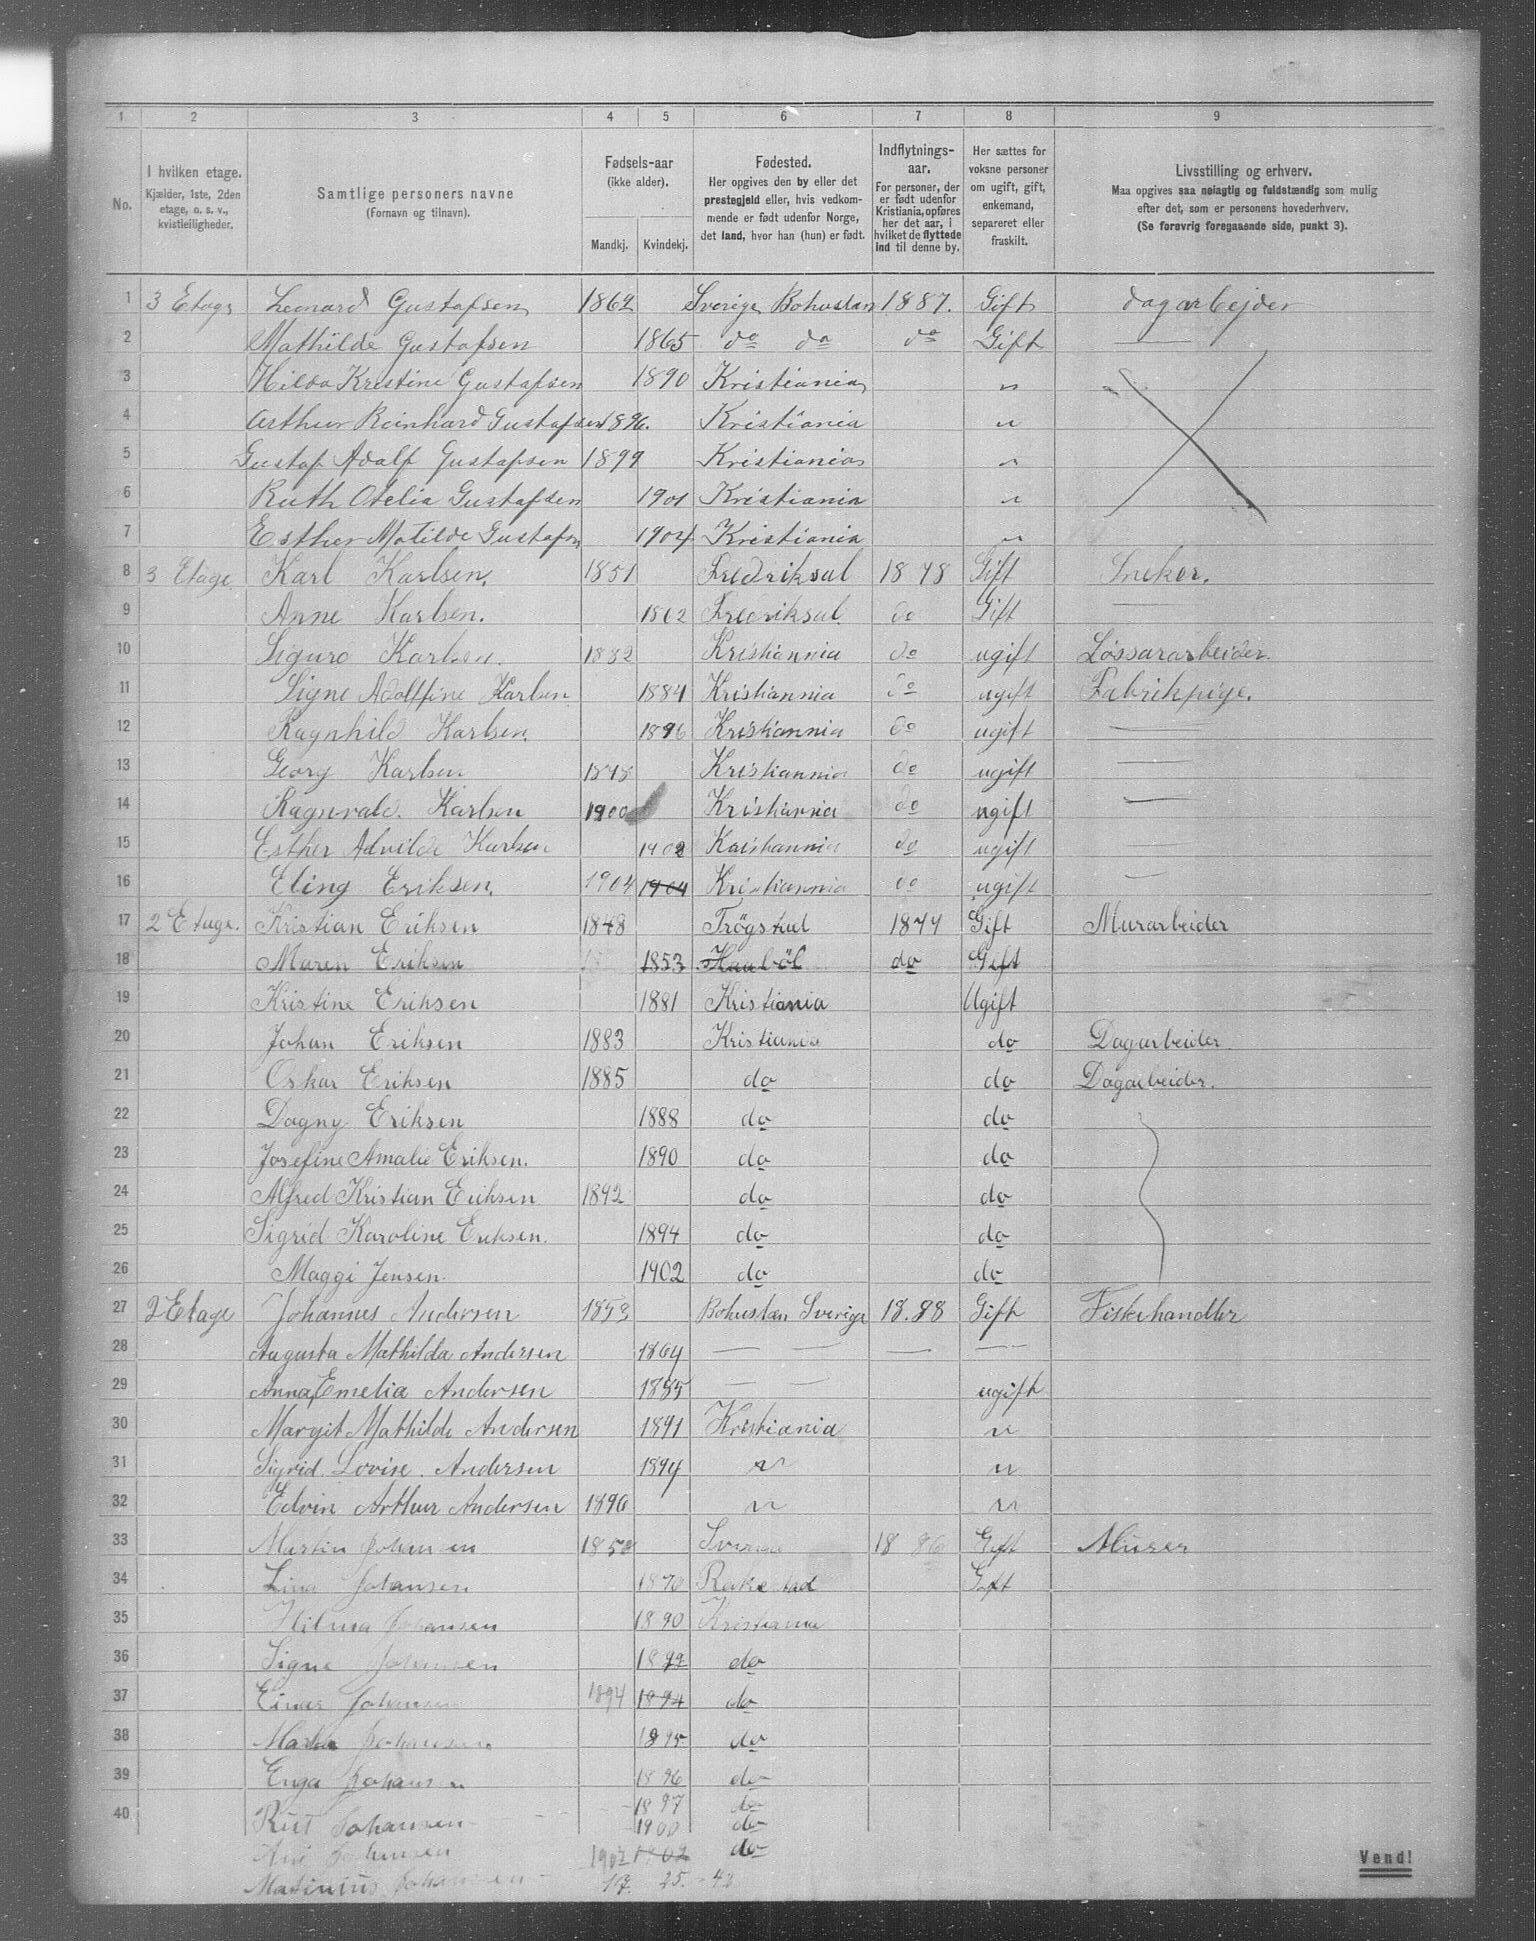 1 2 3 4 5 6 7 8 9
No. I hvilken etage. Kjælder, 1ste, 2den etage, o. s. v., kvistleiligheder. Samtlige personers navne (Fornavn og tilnavn). Fødsels-aar (ikke alder). Mandkj. Kvindekj. Fødested. Her opgives den by eller det prestegjeld eller, hvis vedkommende er født udenfor Norge, det land, hvor han (hun) er født. Indflytnings-aar. For personer, der er født udenfor Kristiania, opføres her det aar, i hvilket de flyttede ind til denne by. Her sættes for voksne personer om ugift, gift, enkemand, separeret eller fraskilt. Livsstilling og erhverv. Maa opgives saa nøiagtig og fuldstændig som mulig efter det, som er personens hovederhverv. (Se forøvrig foregaaende side, punkt 3).
1 3 Etage Leonard Gustafsen 1862 Sverige Bohuslan 1887. Gift dagarbejder
2 Mathilde Gustafsen 1865 do do do Gift —
3 Hilda Kristine Gustafsen 1890 Kristiania "
4 Arthur Reinhard Gustafsen 1896. Kristiania "
5 Gustaf Adolf Gustafsen 1899 Kristiania "
6 Ruth Otelia Gustafsen 1901 Kristiania "
7 Esther Matilde Gustafsn 1904 Kristiania "
8 3 Etage Karl Karlsen. 1851 Fredriksal 1878 Gift Sneker.
9 Anne Karlsen. 1862 Fredriksal do Gift —
10 Sigurd Karlsen. 1882 Kristiannia do ugift Løssararbeider.
11 Signe Adolfine Karlsen 1884 Kristiannia do ugift Fabrikpige.
12 Ragnhild Karlsen. 1896 Kristiannia do ugift —
13 Georg Karlsen Kristiannia do ugift —
14 Ragnvald. Karlsen 1900 Kristiannia do ugift —
15 Esther Advilde Karlsen 1902 Kristiannia do ugift —
16 Eling Eriksen. 1904 1904 Kristiannia do ugift —
17 2 Etage. Kristian Eriksen 1848 Trögstad 1877 Gift Murarbeider
18 Maren Eriksen 1853 Haaböl do Gift
19 Kristine Eriksen 1881 Kristiania Ugift
20 Johan Eriksen 1883 Kristiania do Dagarbeider
21 Oskar Eriksen 1885 do do Dagarbeider.
22 Dagny Eriksen 1888 do do
23 Josefine Amalie Eriksen. 1890 do do
24 Alfred Kristian Eriksen 1892 do do
25 Sigrid Karoline Eriksen. 1894 do do
26 Maggi Jensen. 1902 do do
27 2 Etage Johannes Andersen 1853 Bohuslan Sverige 18.88 Gift Fiskehandler
28 Augusta Mathilda Andersen 1864 — — — —
29 Anna Emelia Andersen 1885 — — ugift
30 Margit Mathilde Andersen 1891 Kristiania "
31 Sigrid. Lovise. Andersen 1894 " "
32 Edvin Arthur Andersen 1896 " "
33 Martin Johansen Sverige 1886 Gift Murer
34 Lina Johansen 1870 Rakestad Gift
35 Hilma Johansen 1890 Kristiania
36 Signe Johansen 1892 do
37 Einar Johansen 1894 1894 do
38 Marta Johansen 1895 do
39 Enga Johansen 1896 do
1897 do
40 Rut Johansen 1900 do
Johansen 1902 1902 do
Matinius Johansen 17. 25. - 42
Vend!